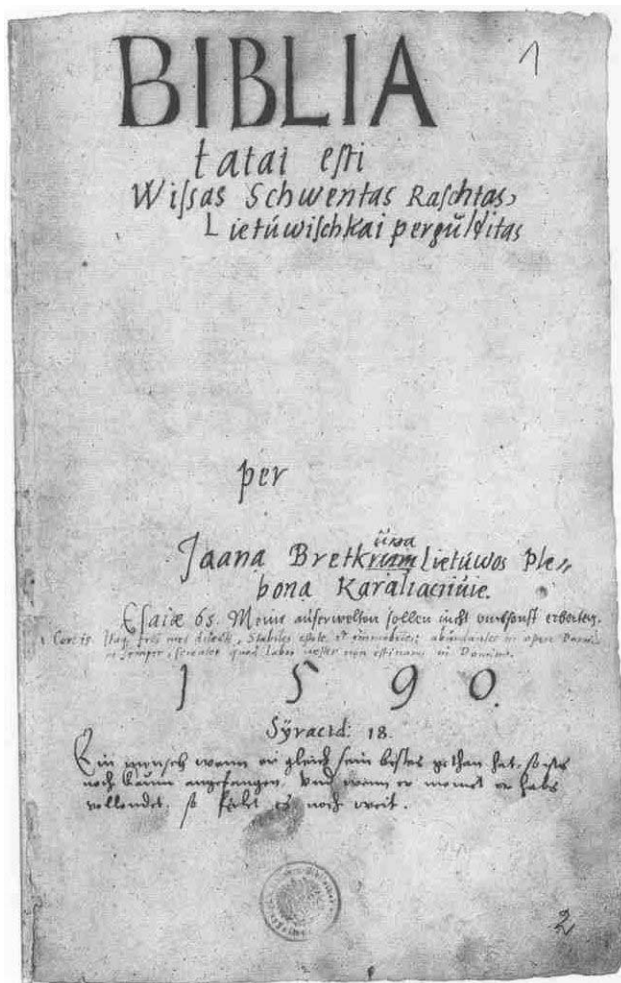 1
BIBLIA
tatai eſti
Wiſsas Schwentas Raſchtas,
Lietúwiſchkai pergulditas
per
Jaana Bretkrium Lietúwos Ple⸗
bona Karaliacziuie.
Eſaiæ 65. Meine auſerwelten ſollen nicht vmbſonſt erbeiten.
1 Cor. 15. Itaq fratres mei dilecti, Stabiles eſtote et immobiles, abundantes in opere Domini
semper, ſcientes quod labor veſter non eſt inanis in Domino.
1590.
Syracid: 18.
Ein menſch wenn er gleich ſein beſtes gethan hat, ſo iſts
noch kaum angefangen, Vnd wenn er meinet er habs
vollendet, ſo feilet es noch weit.
2